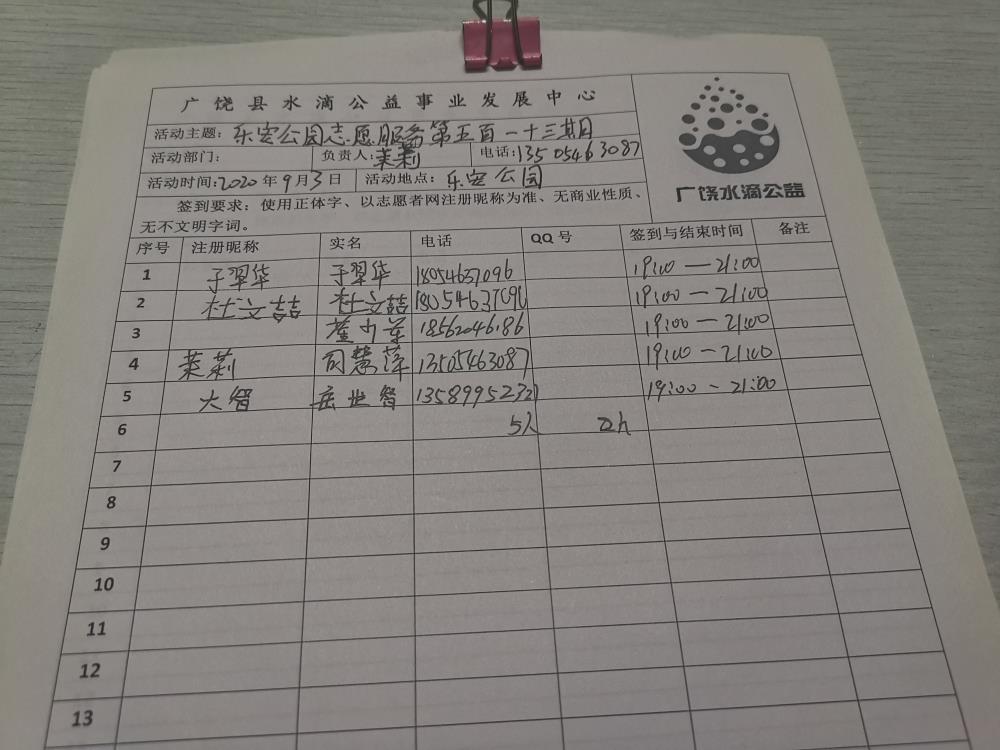 广饶县水滴公益事业发展中心
活动主题：乐安公园志愿服务第五百一十三期
活动部门： 负责人：茉莉 电话：13505463087
活动时间：2020年9月3日 活动地点：乐安公园
签到要求：使用正体字、以志愿者网注册昵称为准、无商业性质、
无不文明字词。
广饶水滴公益
序号 注册昵称 实名 电话 QQ号 签到与结束时间 备注
1 于翠华 于翠华 18054637096 19:00—21:00
2 杜文喆 杜文喆 1805463709 19:00—21:00
3 18562046186 19:00—21:00
4 茉莉 司慧萍 13505463087 19:00—21:00
5 大智 智 1358999523 19:00-21:00
6 5人 2h
7
8
9
10
11
12
13